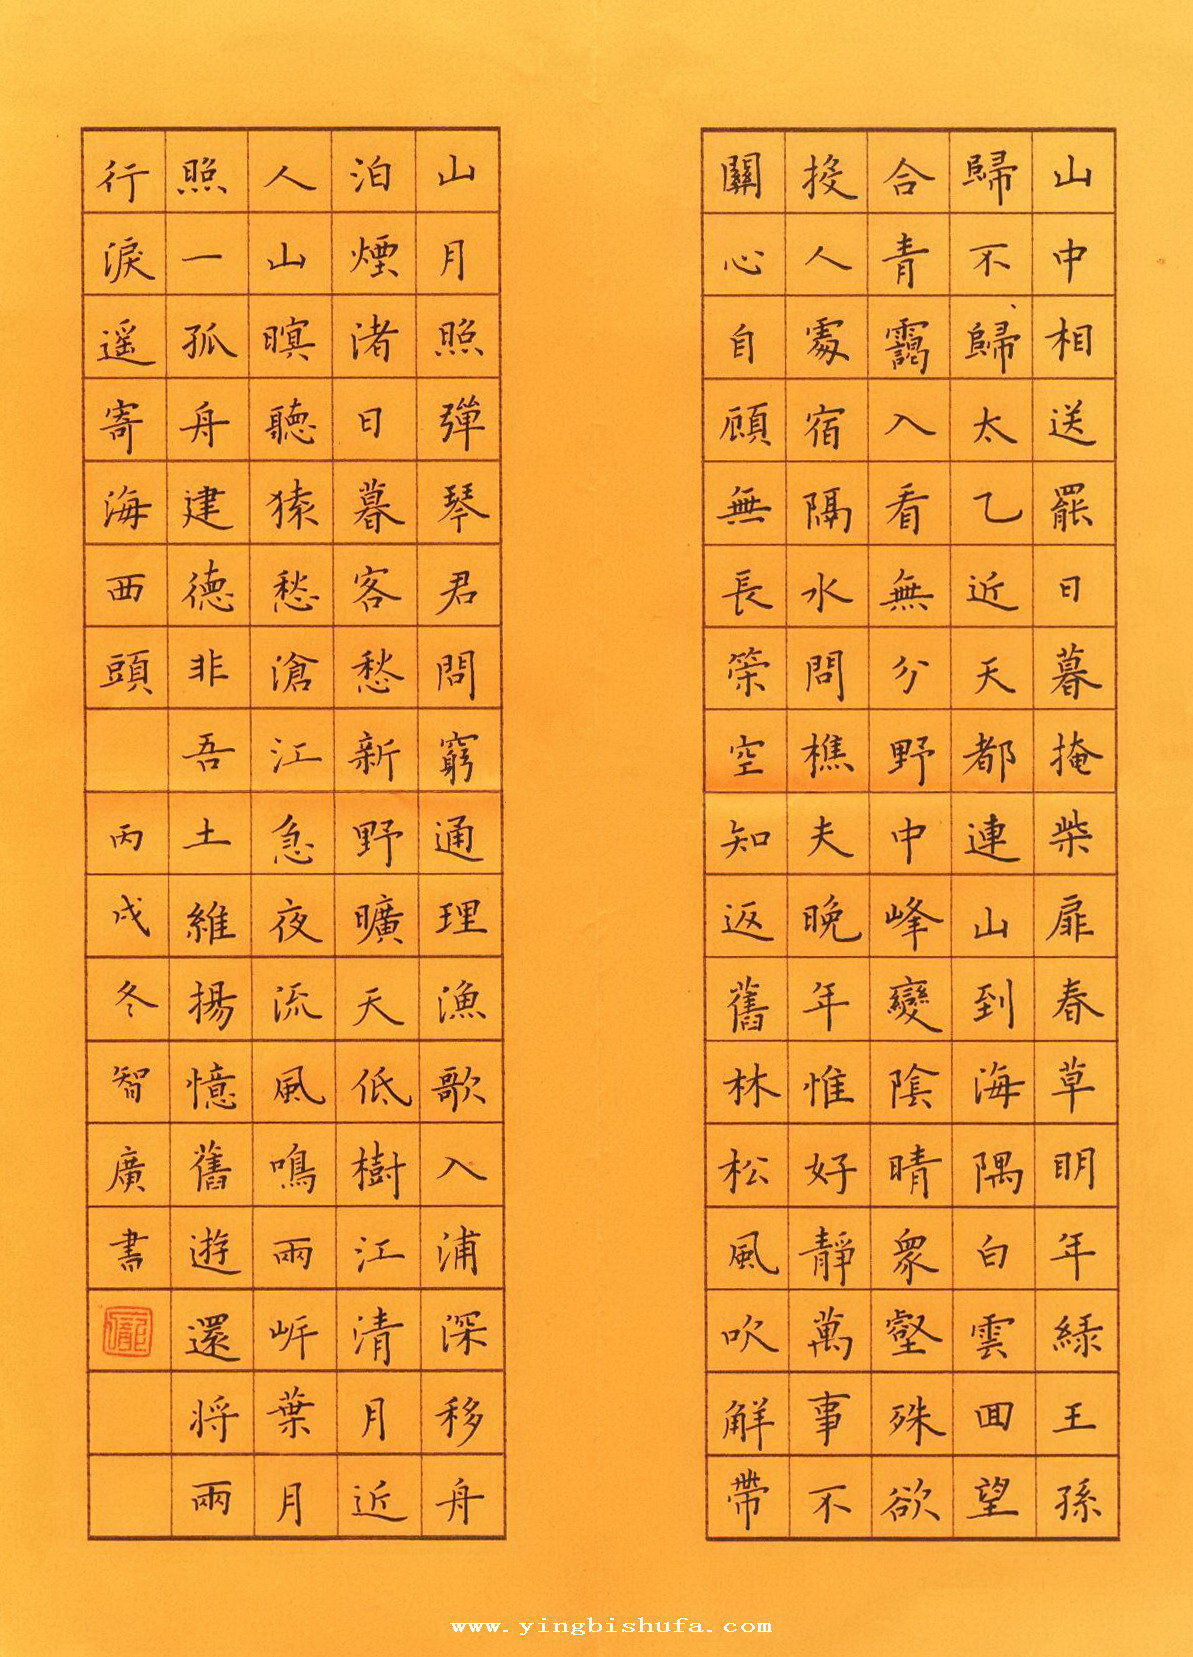 山中相送罷日暮掩柴扉春草明年綠王孫
歸不歸太乙近天都連山到海隅白雲回望
合青靄入看無分野中峰變陰晴衆壑殊欲
投人處宿隔水問樵夫晚年惟好靜萬事不
關心自顧無長策空知返舊林松風吹解帶
山月照彈琴君問窮通理漁歌入浦深移舟
泊煙渚日暮客愁新野曠天低樹江清月近
人山暝聽猿愁滄江急夜流風鳴兩岸葉月
照一孤舟建德非吾土維揚憶舊遊還將兩
行淚遥寄海西頭 丙戌冬智廣書
www.yingbishufa.com